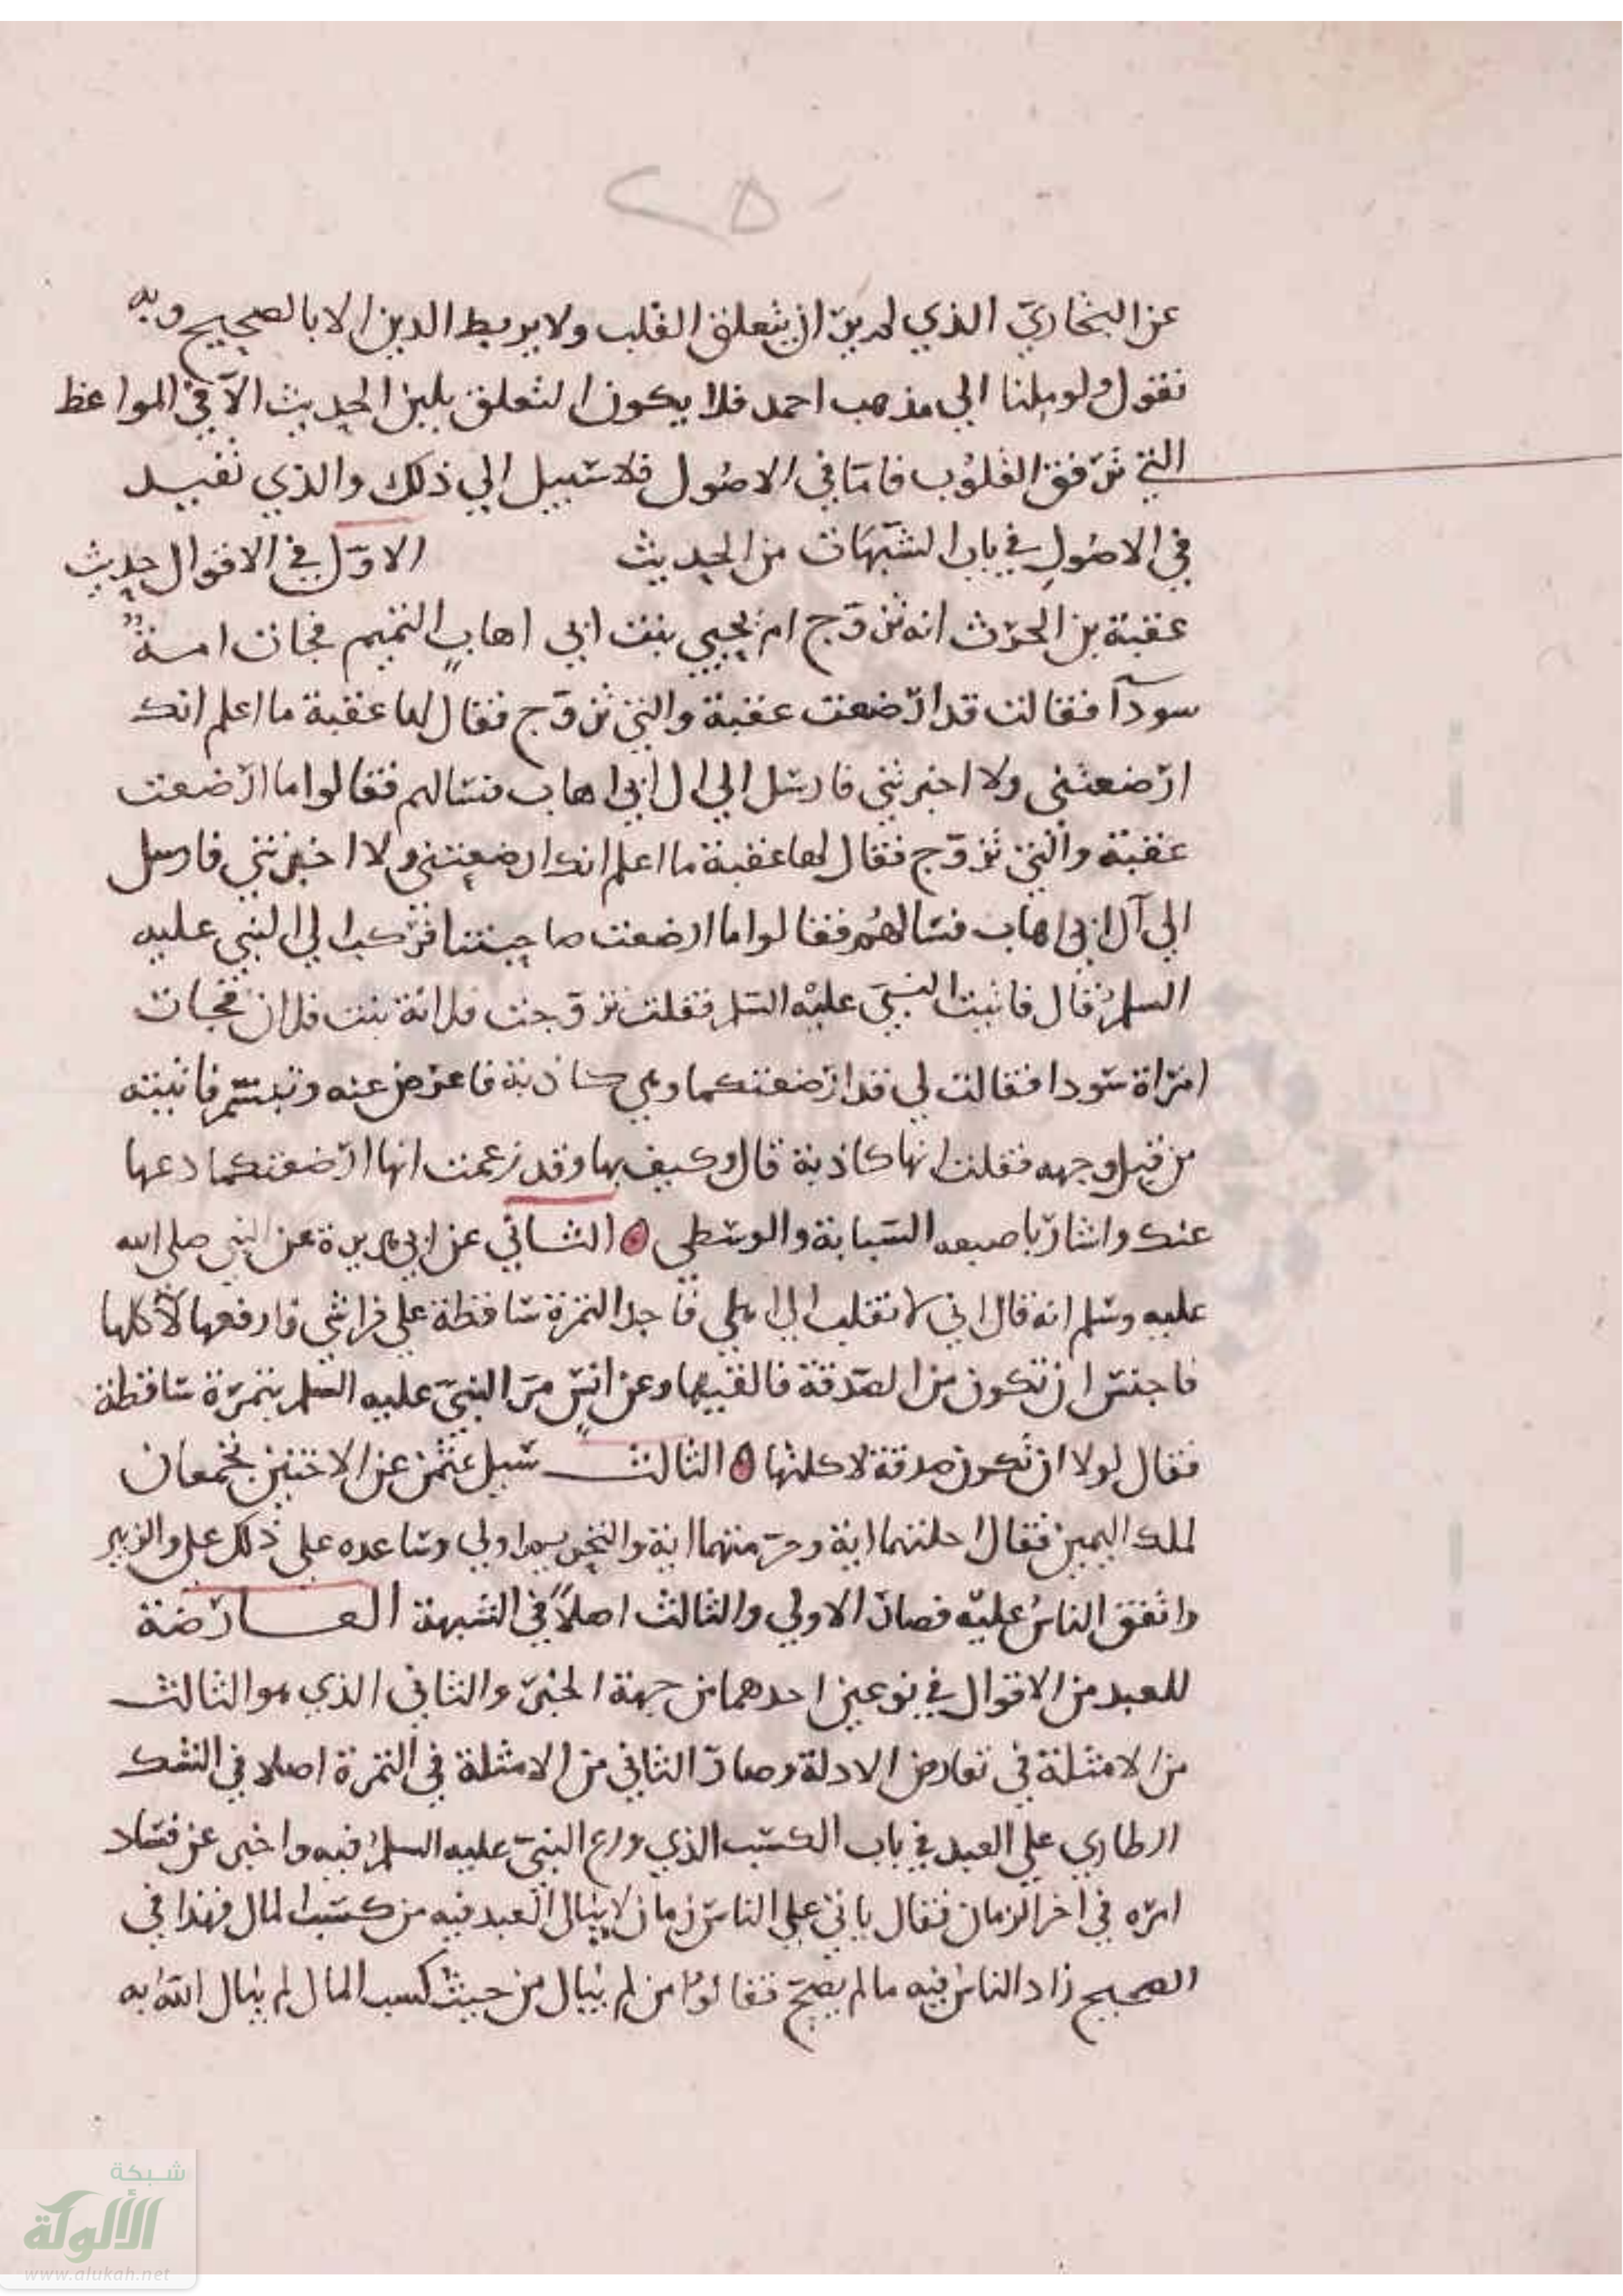 ٢٥٠
عن البخاري الذي لم ير ان يتعلق القلب ولا يربط الدين الا بالصحيح وبه
نقول ولو ملنا الي مذهب احمد فلا يكون التعلق بلين الحديث الا في المواعظ
التي ترقق القلوب فامّا في الاصول فلا سبيل الي ذلك والذي نقيد
في الاصول في باب الشبهات من الحديث الاول في الاقوال حديث
عقبة بن الحرث انه تزوج ام يحيي بنت ابي اهاب التميم فجات امة
سودآ فقالت قد ارضعت عقبة والتي تزوج فقال لها عقبة ما اعلم انك
ارضعتني ولا اخبرتني فارسل الي ال ابي اهاب فسالهم فقالوا ما ارضعت
عقبة والتي تزوج فقال لها عقبة ما اعلم انك ارضعتني ولا اخبرتني فارسل
الي آل ابي اهاب فسالهم فقالوا ما ارضعت صاحبتنا فركب الي النبي عليه
السلم قال فاتيت النبي عليه السلم فقلت تزوجت فلانة بنت فلان فجات
امراة سودا فقالت لي قد ارضعتكما وهي كاذبة فاعرض عنه وتبسم فاتيته
من قبل وجهه فقلت انها كاذبة قال وكيف بها وقد زعمت انها ارضعتكما دعها
عنك واشار باصبعه السبابة والوسطي الثاني عن ابي هريرة عن النبي صلي الله
عليه وسلم انه قال اني لانقلب الي اهلي فاجد التمرة ساقطة علي فراشي فارفعها لآكلها
فاخشي ان تكون من الصدقة فالقيها وعن انس مر النبي عليه السلم بتمرة ساقطة
فقال لولا ان تكون صدقة لاكلتها الثالث سيل عثمن عن الاختين تجمعان
لملك اليمين فقال احلتهما اية وحرمتهما اية والتحريم اولي وساعده علي ذلك علي والزبير
واتفق الناس عليه فصار الاولي والثالث اصلاً في الشبهة العارضة
للعبد من الاقوال في نوعين احدهما من جهة الخبر والثاني الذي هو الثالث
من الامثلة في تعارض الادلة وصار الثاني من الامثلة في التمرة اصلا في الشك
الطاري علي العبد في باب الكسب الذي ورع النبي عليه السلم فيه واخبر عن فساد
امره في اخر الزمان فقال ياتي علي الناس زمان لا يبال العبد فيه من كسب المال فهذا في
الصحيح زاد الناس فيه ما لم يصح فقالوا من لم يبال من حيث كسب المال لم يبال الله به
شبكة
الألوكة
www.alukah.net